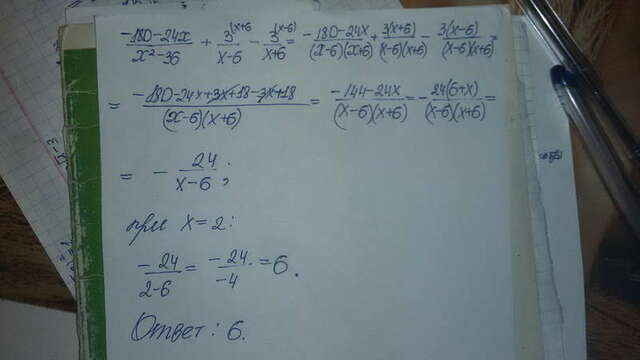 (-180-24x)/(x²-36) + 3^(x+6)/(x-6) - 3^(x-6)/(x+6) = (-180-24x)/((x-6)(x+6)) + 3(x+6)/((x-6)(x+6)) - 3(x-6)/((x-6)(x+6)) =
= (-180-24x+3x+18-3x+18)/((x-6)(x+6)) = (-144-24x)/((x-6)(x+6)) = - 24(6+x)/((x-6)(x+6)) =
= - 24/(x-6) ;
при x=2:
-24/(2-6) = -24/-4 = 6.
Ответ: 6.